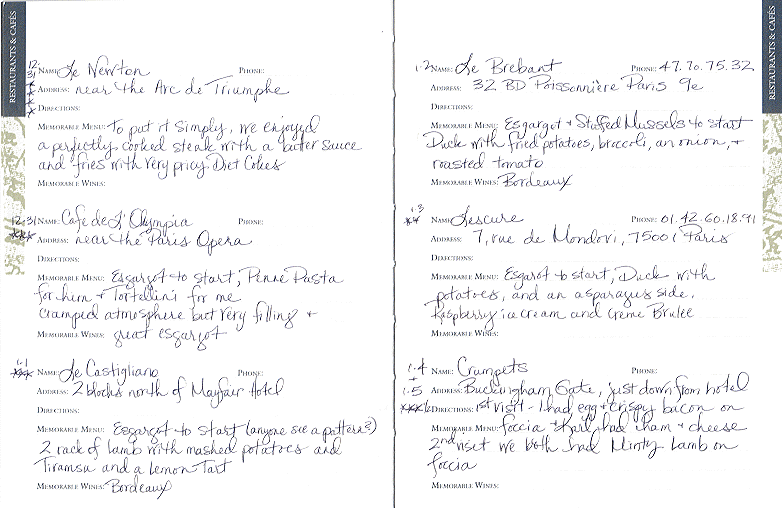 RESTAURANTS & CAFÉS
12.31
NAME: Le Newton PHONE:
ADDRESS: near the Arc de Triumphe
DIRECTIONS:
MEMORABLE MENU: To put it simply, we enjoyed
a perfectly cooked steak with a butter sauce
and fries with very pricy Diet Cokes
MEMORABLE WINES:
12.31 NAME: Cafe de L'Olympia PHONE:
*** ADDRESS: near the Paris Opera
DIRECTIONS:
MEMORABLE MENU: Esgargot to start, Penne Pasta
for him + Tortellini's for me
cramped atmosphere but very filling +
MEMORABLE WINES: great esgargot
1.1
*** NAME: Le Castigliano PHONE:
ADDRESS: 2 blocks north of Mayfair Hotel
DIRECTIONS:
MEMORABLE MENU: Esgargot to start (anyone see a pattern?)
2 rack of lamb with mashed potatoes and
Tiramsu and a Lemon Tart
MEMORABLE WINES: Bordeaux
RESTAURANTS & CAFÉS
1.2 NAME: Le Brebant PHONE: 47.70.75.32
ADDRESS: 32 BD Poissonnière Paris 9e
DIRECTIONS:
MEMORABLE MENU: Esgargot + Stuffed Mussels to start
Duck with fried potatoes, broccoli, an onion, +
roasted tomato
MEMORABLE WINES: Bordeaux
1.3
** NAME: Lescure PHONE: 01.42.60.18.91
ADDRESS: 7, rue de Mondovi, 75001 Paris
DIRECTIONS:
MEMORABLE MENU: Esgarot to start, Duck with
potatoes, and an asparagus side.
Raspberry ice cream and Creme Brulee
MEMORABLE WINES:
1.4 NAME: Crumpets PHONE:
+
1.5 ADDRESS: Buckingham Gate, just down from hotel
DIRECTIONS: 1st visit - I had egg + crispy bacon on
MEMORABLE MENU: foccia + Karl had ham + cheese
2nd visit we both had Minty Lamb on
foccia
MEMORABLE WINES: